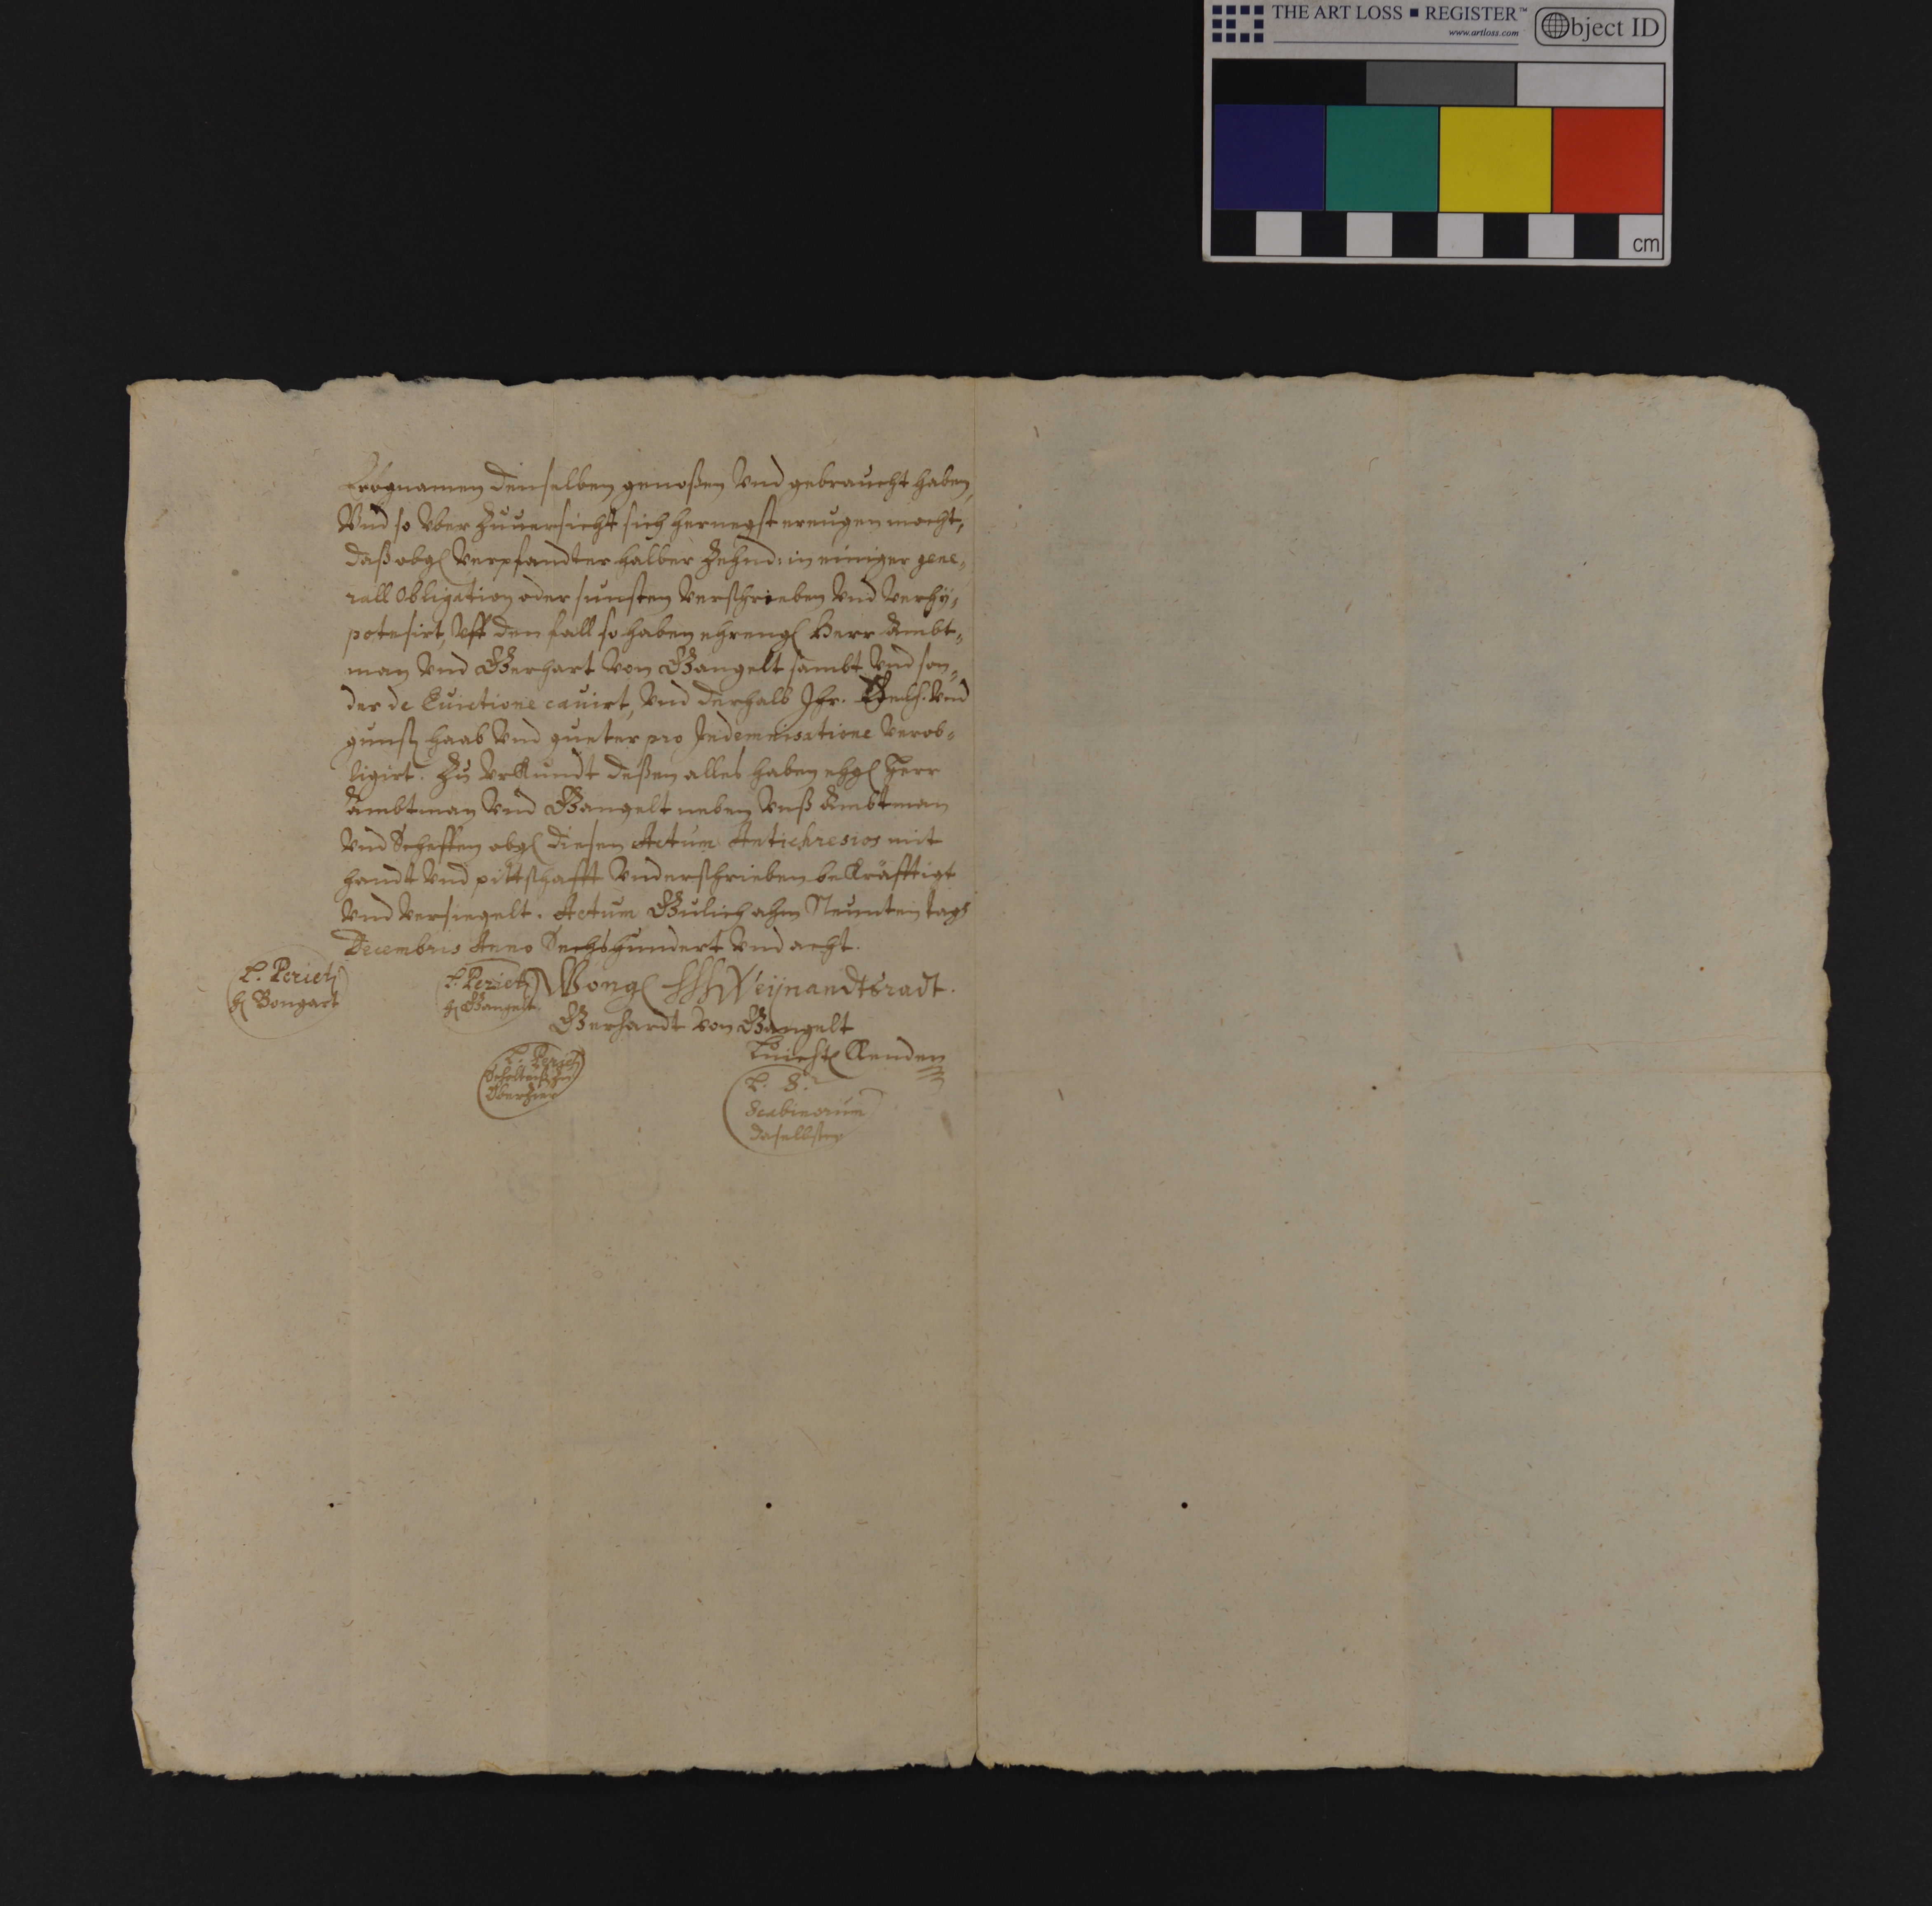 THE ART LOSS ▪ REGISTER™
www.artloss.com
Object ID
cm
denselben genoßen vnd gebraucht haben,
Vnd so vber Zuuersicht sich hernegst ereugen mocht,
daß obg verpfandter halber Zehnd in einiger gene-
rall Obligation oder sunsten verschrieben vnd verhy-
potesirt, vff den fall so haben ehreng Herr Ambt-
man vnd Gerhart von Gangelt sambt vnd son-
der de Euictione cauirt, vnd derhalb Jhr. vnd
haab vnd gueter pro Indemnisatione verob-
ligirt. Zu vrkundt deßen alles haben ehg Herr
Ambtman vnd Gangelt neben vnß Ambtman
vnd Scheffen obg diesen Actum Antichresios mit
handt vnd pittschafft vnderschrieben bekräfftigt
vnd versiegelt. Actum Gulich ahm Neunten tag
Decembris Anno Sechshundert vnd acht.
L. H Bongart
L. H Gangelt
Weijnandtsradt.
Gerhardt von Gangelt
L.
L. S.
Scabinorum
daselbsten